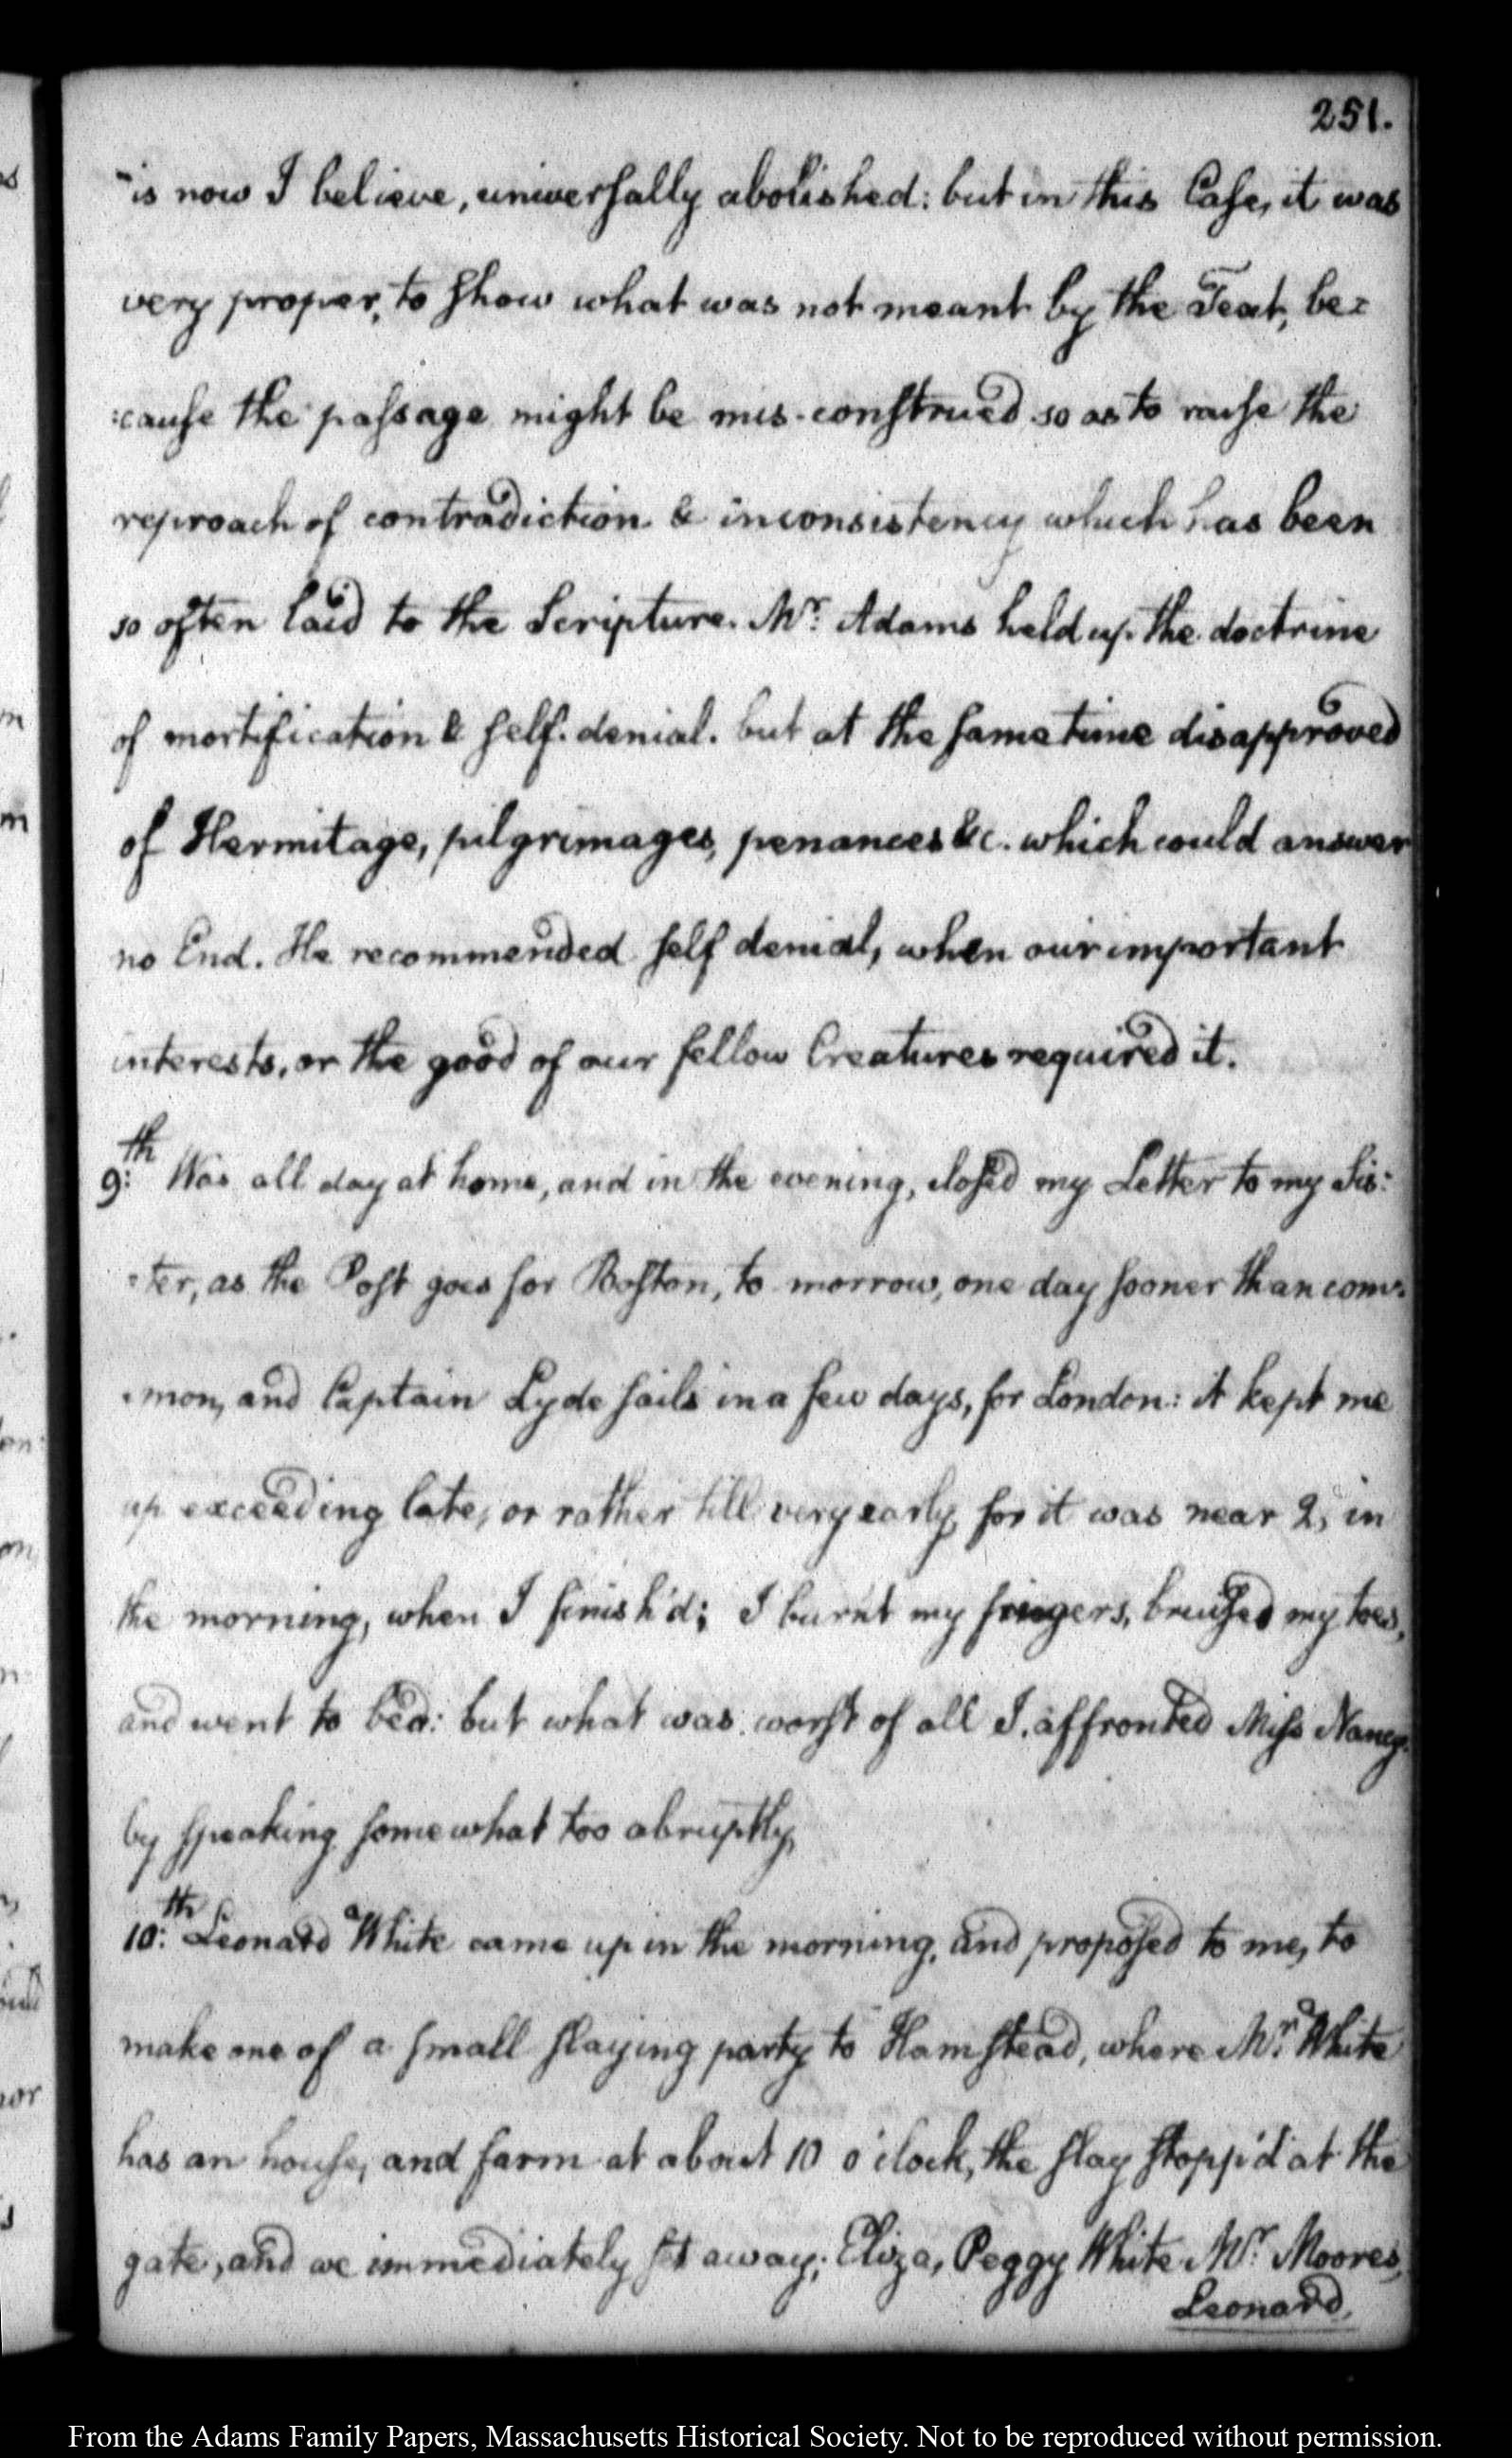 251.
-is now I believe, universally abolished: but in this Case, it was
very proper, to show what was not meant by the Text, be=
:cause the passage might be mis-construed so as to raise the
reproach of contradiction & inconsistency which has been
so often laid to the Scripture. Mr: Adams held up the doctrine
of mortification & self-denial. but at the same time disapproved
of Hermitage, pilgrimages, penances &c. which could answer
no End. He recommended self denial, when our important
interests, or the good of our fellow Creatures required it.
9:th Was all day at home, and in the evening, closed my Letter to my Sis:
:ter, as the Post goes for Boston, to morrow, one day sooner than com:
:mon, and Captain Lyde sails in a few days, for London: it kept me
up exceeding late, or rather till very early, for it was near 2, in
the morning, when I finish'd; I burnt my fingers, bruised my toes,
and went to bed: but what was worst of all I affronted Miss Nancy.
by speaking somewhat too abruptly,
10:th Leonard White came up in the morning, and proposed to me, to
make one of a small slaying party to Hamstead, where Mr: White
has an house, and farm at about 10 o'clock, the slay stopp'd at the
gate, and we immediately set away; Eliza, Peggy White Mr: Moores,
Leonard,
From the Adams Family Papers, Massachusetts Historical Society. Not to be reproduced without permission.